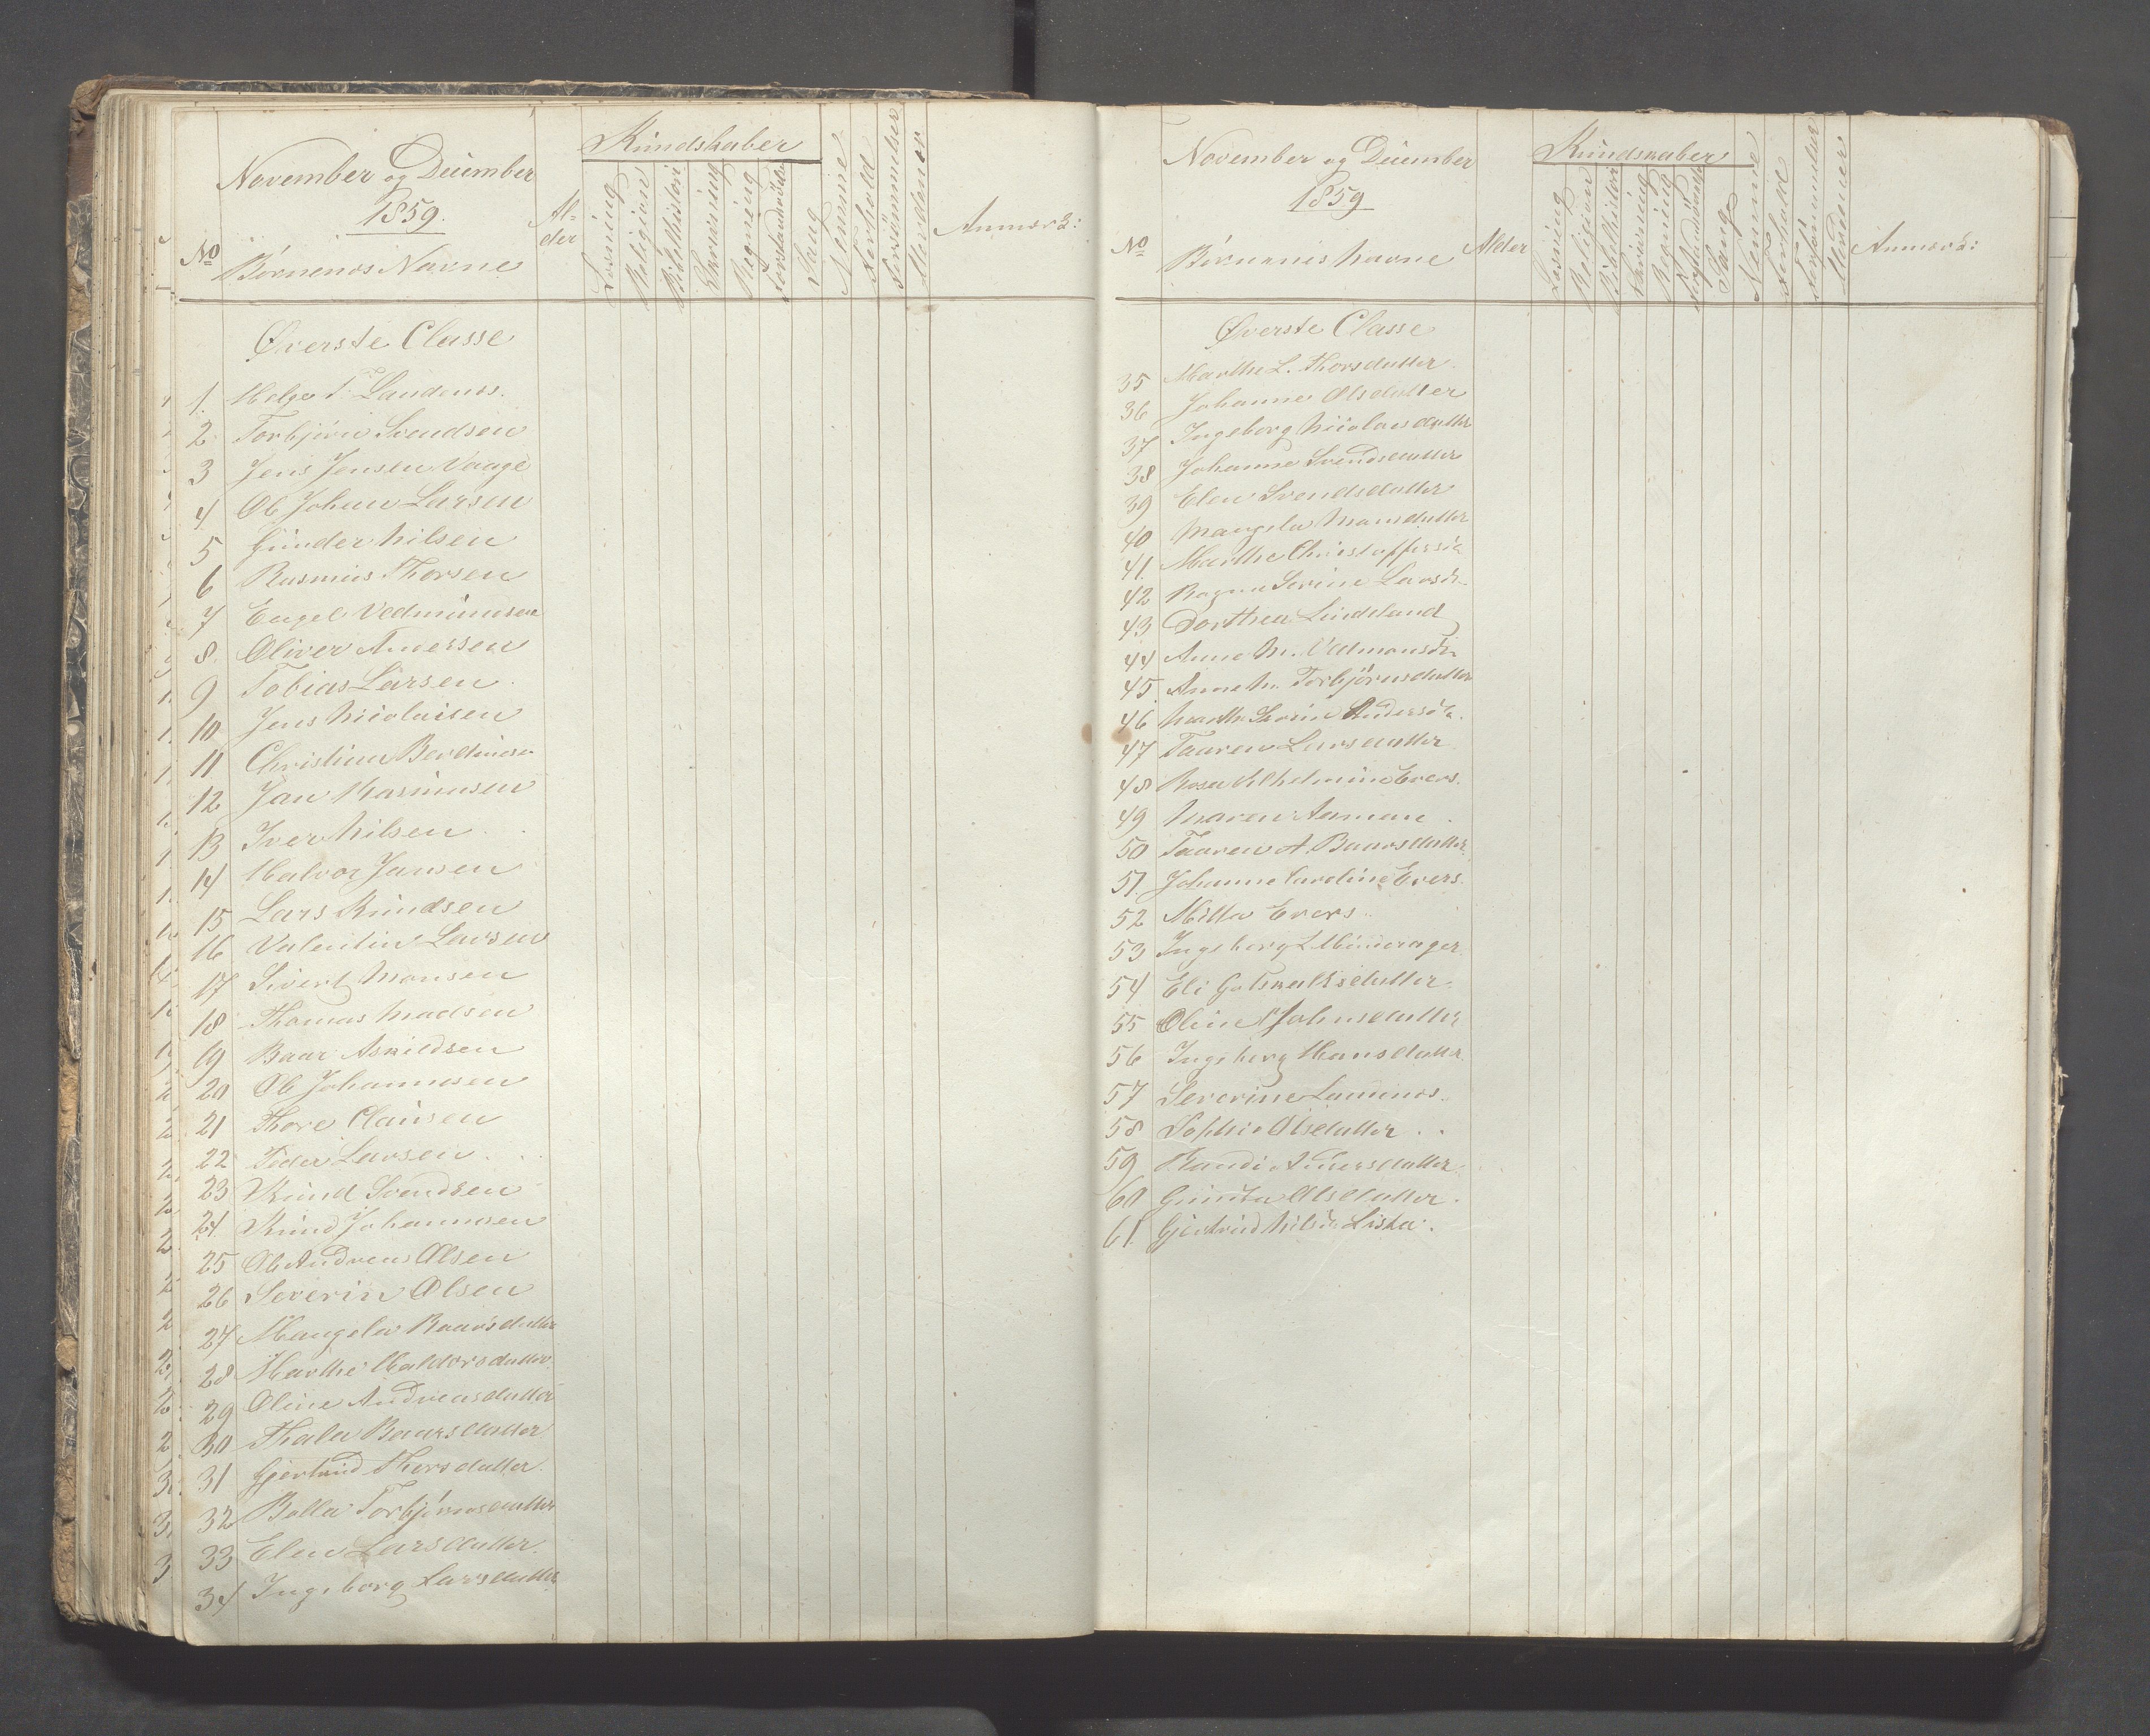 November og December
1859.
No
Børnenes Navne
Al-
der
Kundskaber
Læsning
Religion
Bibelhistori
Skrivning
Regning
Forstandsøvelser
Sang
Nemme
Forhold
Forsømmelser
Mødedage
Anmærk:
Øverste Classe
1. Helge T. Landenes.
2 Torbjörn Svendsen
3 Jens Jensen Vaage
4 Ole Johan Larsen
5 Gunder Nilsen
6 Rasmus Thorsen
7 Engel Vedmundsen
8. Oliver Andersen
9 Tobias Larsen
10 Jens Nicolaisen
11 Christian Berdinesen
12 Jan Rasmusen
13 Iver Nilsen
14 Halvor Jansen
15 Lars Knudsen
16 Valentin Larsen
17 Sivert Monsen
18 Thomas Madsen
19 Baar Askildsen
20 Ole Johannesen
21 Thore Clausen
22 Peder Larsen
23 Knud Svendsen
24 Knud Johannesen
25 Ole Andreas Olsen
26 Severin Olsen
27 Mangela Baarsdatter
28 Marthe Haldorsdatter
29 Oline Andreasdatter
30 Thala Baarsdatter
31 Gjertrud Thorsdatter
32 Bolla Torbjörnsdatter
33 Elen Larsdatter
34 Ingeborg Larsdatter
November og December
1859
No
Børnenes Navne
Alder
Kundskaber
Læsning
Religion
Bibelhistori
Skrivning
Regning
Forstandsøvelse
Sang
Nemme
Forhold
Forsømmelser
Mødedage
Anmærk:
Øverste Classe
35 Marthe L. Thorsdatter
36 Johanne Olsdatter
37 Ingeborg Nicolaisdatter
38 Johanne Svendsdatter
39 Elen Svendsdatter
40 Mangela Monsdatter
41. Marthe Christoffersd.
42 Ragna Serine Larsd.
43 Dorthea Lindeland
44 Anne M. Vedmundsd.
45. Anne M. Torbjörnsdatter
46 Marthe Serine Andersd.
47 Taaren Larsdatter
48 Rosa Vilhelmine Evers.
49 Maren Aamen
50 Taaren A. Baarsdatter
51. Johanne Caroline Evers.
52 Milla Evers.
53 Ingeborg L.
54 Eli Gotskalksdatter.
55 Oline Johnsdatter
56 Ingeborg Hansdatter
57 Severine Lamines.
58 Sophie Olsdatter
59 Randi Andersdatter
60 Gunila Olsdatter.
61. Gjertrud Nilsd. Liska.